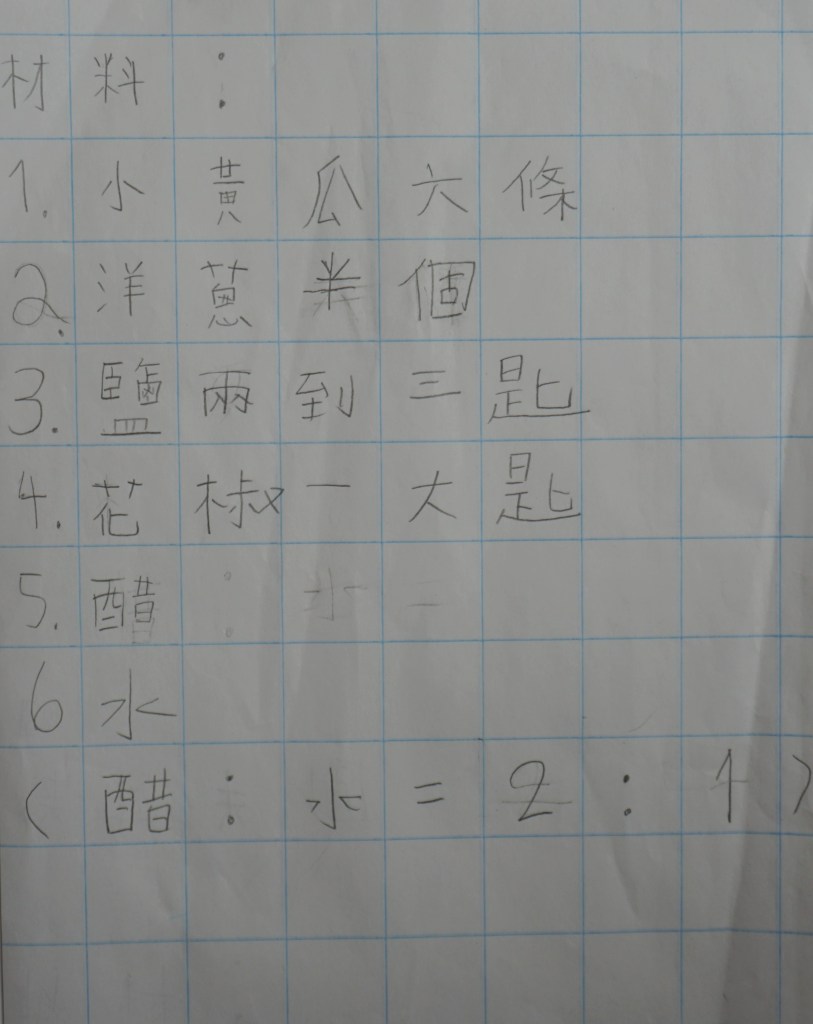 材料：
1.小黃瓜六條
2.洋蔥半個
3.鹽兩到三匙
4.花椒一大匙
5.醋
6水
(醋：水=2：1)